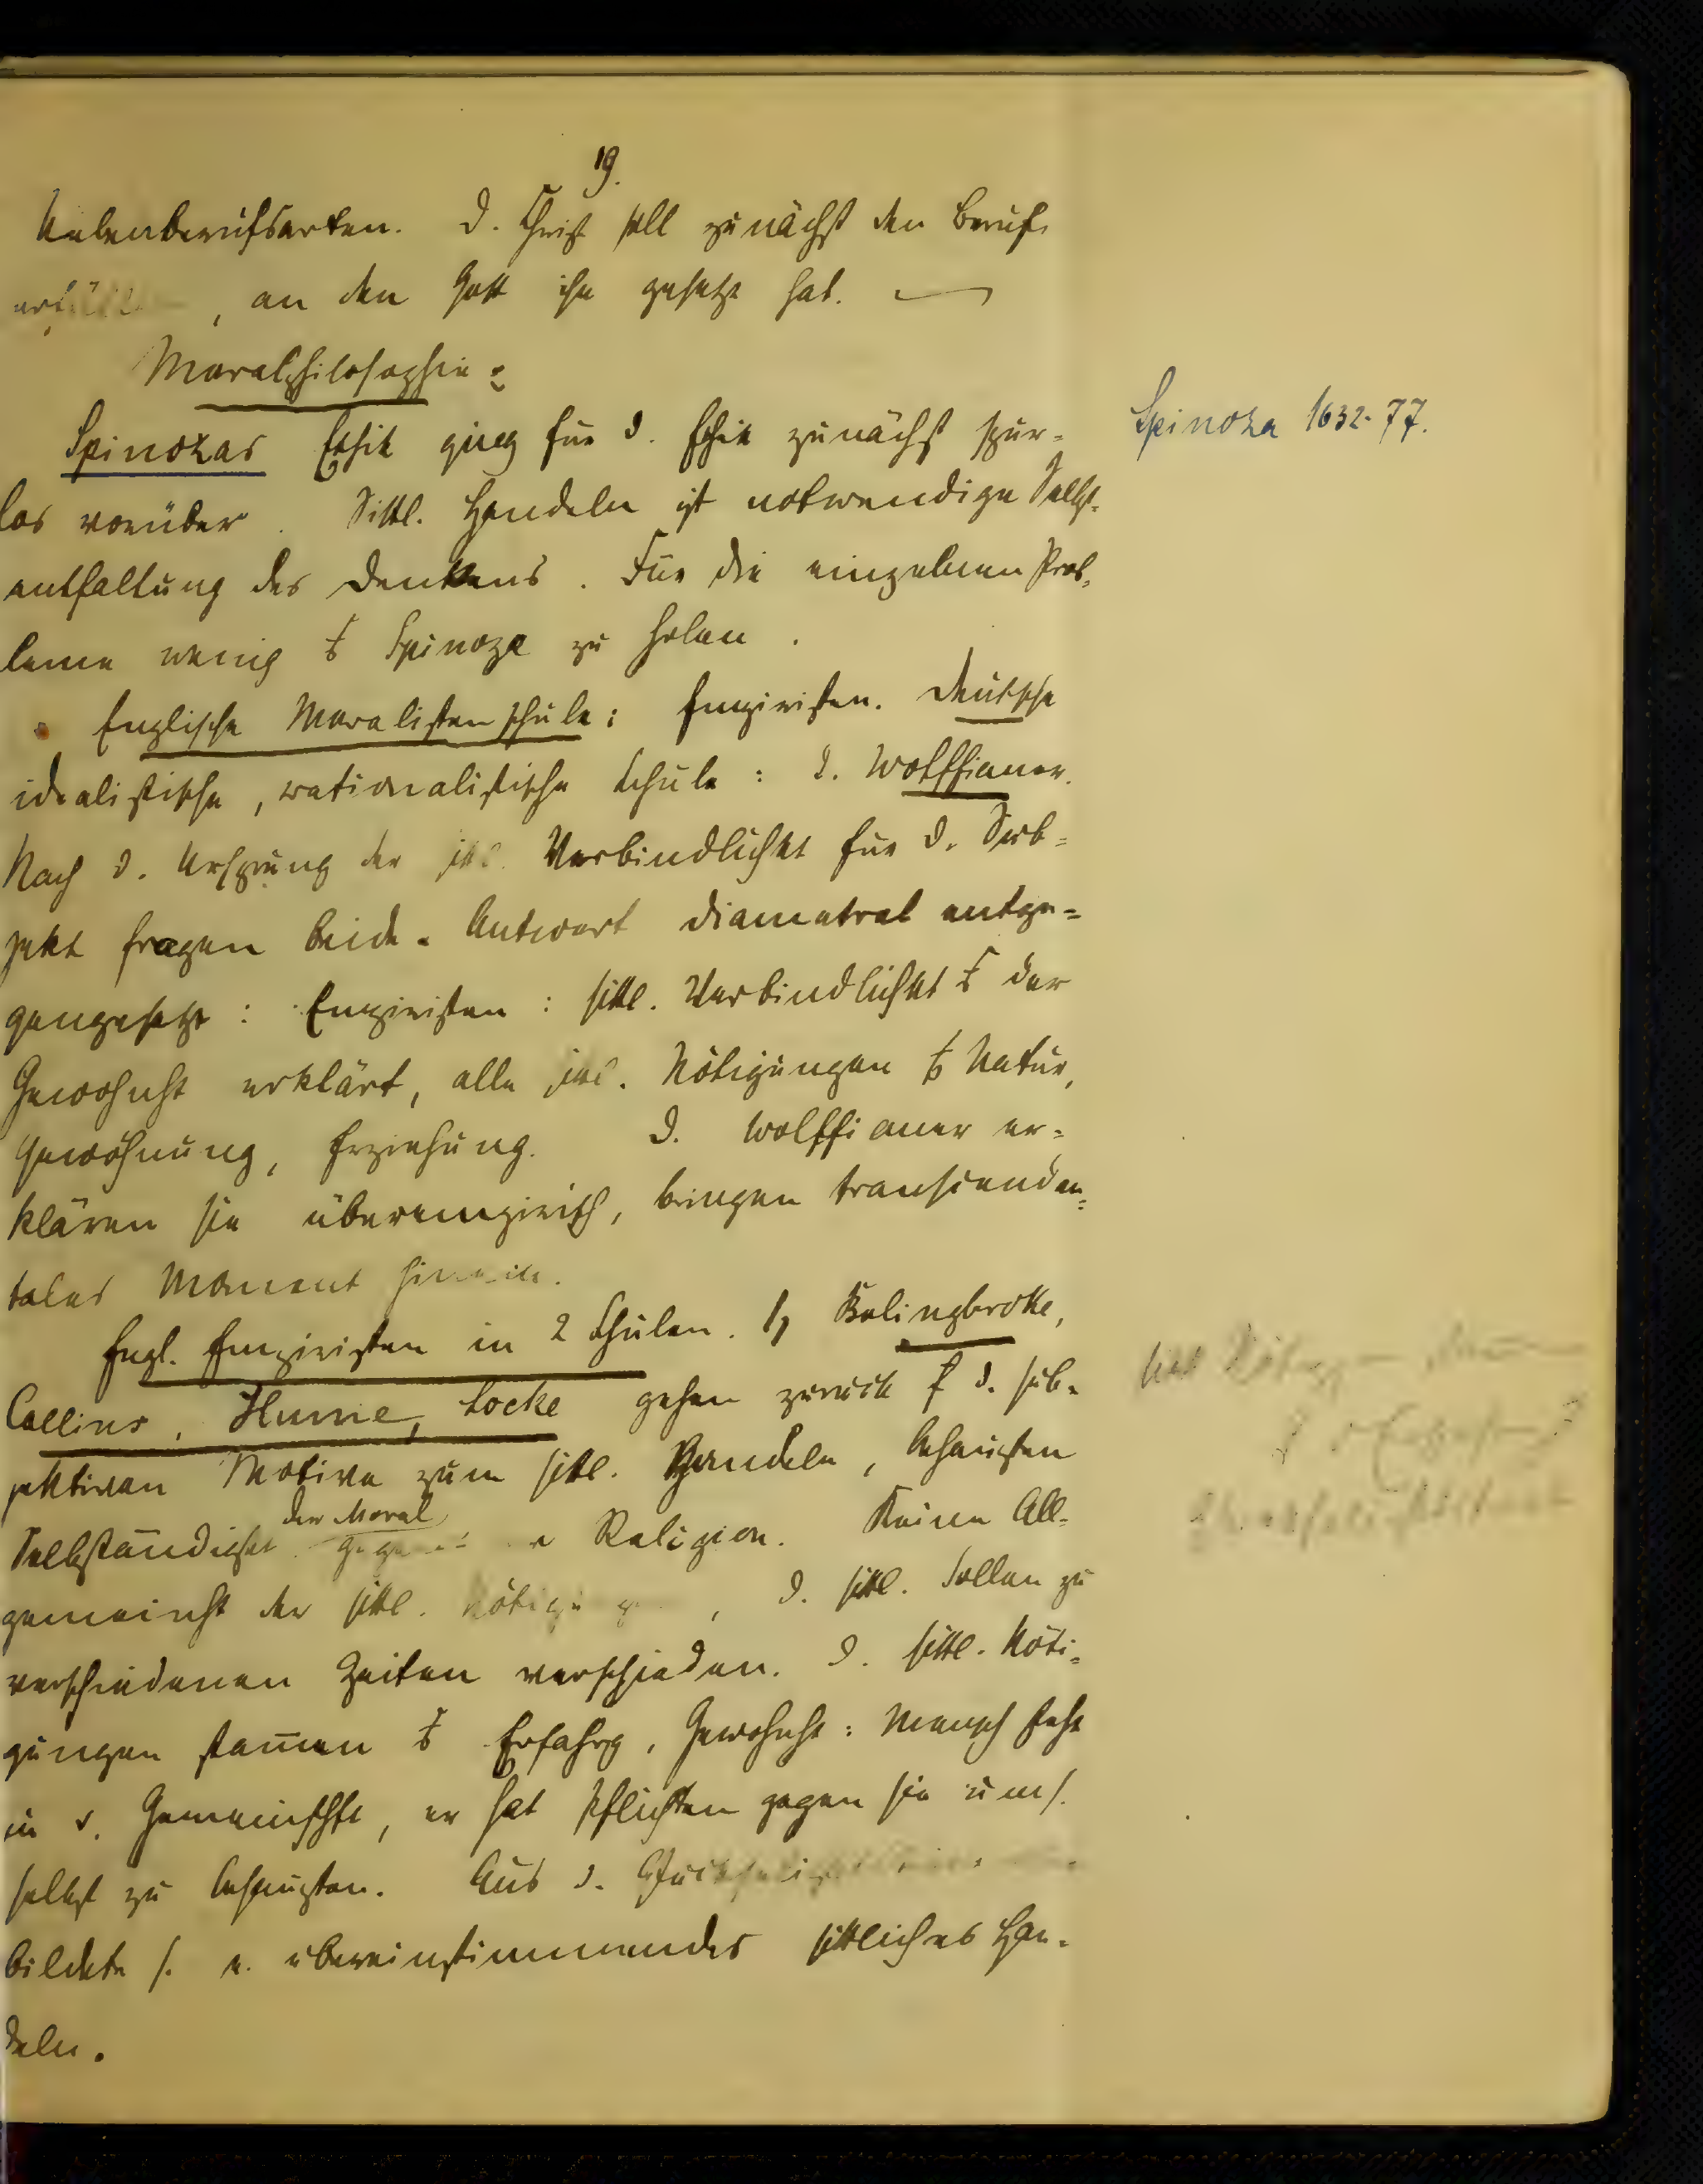 19.
Nebenberufsarten. D. Christ soll zunächst den Beruf
erfüllen, an den Gott ihn gesetzt hat. —
Moralphilosophie:
Spinozas Ethik ging für d. Ethik zunächst spur-
Spinoza 1632-77.
los vorüber. Sittl. Handeln ist notwendige Selbst-
entfaltung des Denkens. Für die einzelnen Prob-
leme wenig Spinoza zu holen.
Englische Moralistenschule: Empiristen. Deutsche
idealistische, rationalistische Schule: d. Wolffianer.
Nach d. Ursprung der sittl. Verbindlichkt für d. Sub-
jekt fragen beide. Antwort diametral entge-
gengesetzt: Empiristen: sittl. Verbindlichkt der
Gewohnht erklärt, alle sittl. Nötigungen Natur,
Gewöhnung, Erziehung. D. Wolffianer er-
klären sie überempirisch, bringen transcenden-
tales Moment hinein.
Engl. Empiristen in 2 Schulen. 1) Bolingbroke,
Collins, Hume, Locke gehen zurück d. sub-
jektiven Motive zum sittl. Handeln, behaupten
Selbständigkt der Moral Religion. Keine All-
gemeinht der sittl. Nötigungen, d. sittl. Sollen zu
verschiedenen Zeiten verschieden. D. sittl. Nöti-
gungen stam̄en Erfahrg, Gewohnht: Mensch steht
in d. Gemeinschft, er hat Pflichten gegen sie u. m s.
selbst zu behaupten. Aus d.
bildete s. e. übereinstimmendes sittliches Han-
deln.